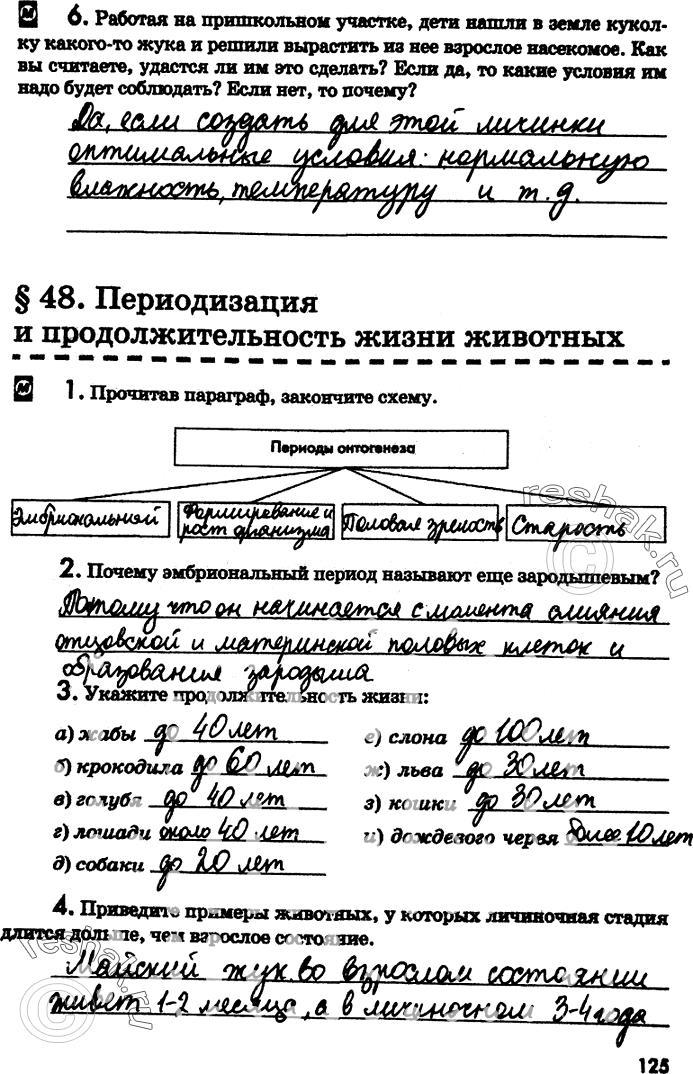 6. Работая на пришкольном участке, дети нашли в земле кукол-
ку какого-то жука и решили вырастить из нее взрослое насекомое. Как
вы считаете, удастся ли им это сделать? Если да, то какие условия им
надо будет соблюдать? Если нет, то почему?
Да, если создать для этой личинки
оптимальные условия: нормальную
влажность, температуру и т.д.
§ 48. Периодизация
и продолжительность жизни животных
1. Прочитав параграф, закончите схему.
Периоды онтогенеза
Эмбриональный
Формирование и
рост организма
Половая зрелость
Старость
2. Почему эмбриональный период называют еще зародышевым?
Потому что он начинается с момента слияния
отцовской и материнской половых клеток и
образования зародыша
3. Укажите продолжительность жизни:
а) жабы до 40 лет
б) крокодила до 60 лет
в) голубя до 40 лет
г) лошади около 40 лет
д) собаки до 20 лет
е) слона до 100 лет
ж) льва до 30 лет
з) кошки до 30 лет
и) дождевого червя более 10 лет
4. Приведите примеры животных, у которых личиночная стадия
длится дольше, чем взрослое состояние.
Майский жук во взрослом состоянии
живет 1-2 месяца, а в личиночном 3-4 года
125
reshak.ru
reshak.ru